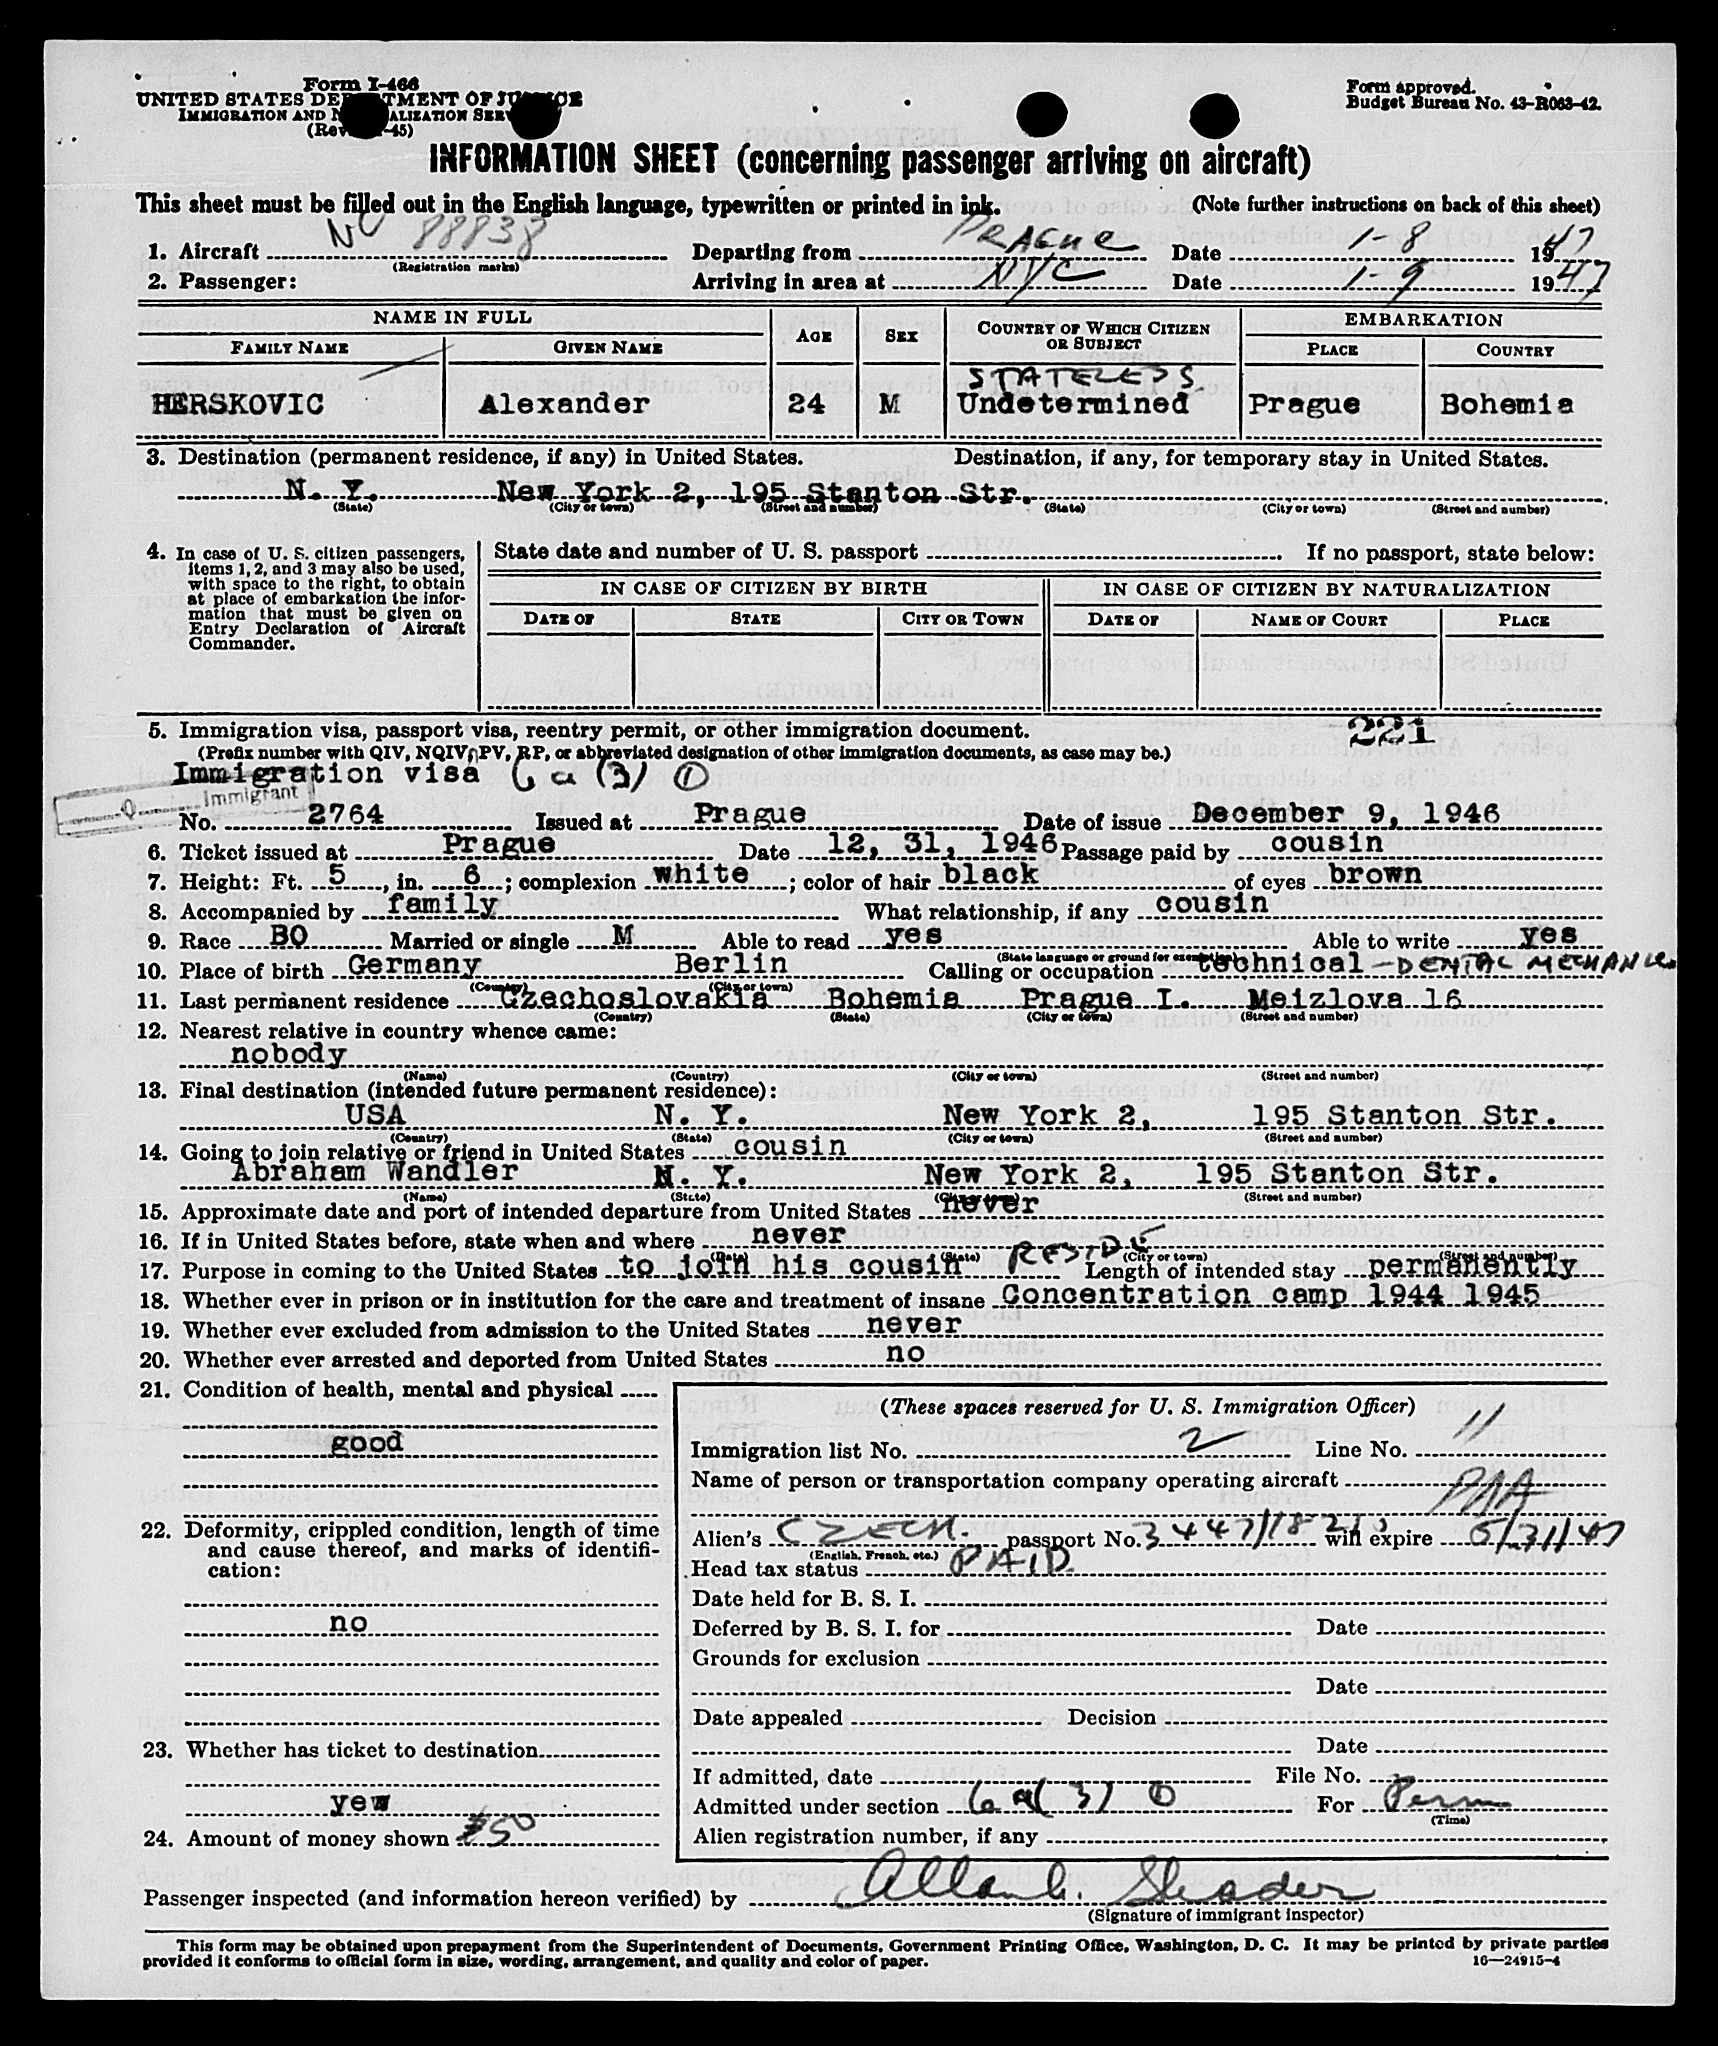 Form I-466
UNITED STATES DEPARTMENT OF JUSTICE
IMMIGRATION AND NATURALIZATION SERVICE
(Rev. -45)
Form approved.
Budget Bureau No. 43-R063-42.
INFORMATION SHEET (concerning passenger arriving on aircraft)
This sheet must be filled out in the English language, typewritten or printed in ink. (Note further instructions on back of this sheet)
1. Aircraft NC 88838 Departing from PRAGUE Date 1-8 1947
(Registration marks)
2. Passenger: Arriving in area at NYC Date 1-9 1947
NAME IN FULL AGE SEX COUNTRY OF WHICH CITIZEN OR SUBJECT EMBARKATION
FAMILY NAME GIVEN NAME PLACE COUNTRY
STATELESS
HERSKOVIC Alexander 24 M Undetermined Prague Bohemia
3. Destination (permanent residence, if any) in United States. Destination, if any, for temporary stay in United States.
N. Y. New York 2, 195 Stanton Str.
(State) (City or town) (Street and number) (State) (City or town) (Street and number)
4. In case of U. S. citizen passengers, items 1, 2, and 3 may also be used, with space to the right, to obtain at place of embarkation the information that must be given on Entry Declaration of Aircraft Commander.
State date and number of U. S. passport If no passport, state below:
IN CASE OF CITIZEN BY BIRTH IN CASE OF CITIZEN BY NATURALIZATION
DATE OF STATE CITY OR TOWN DATE OF NAME OF COURT PLACE
5. Immigration visa, passport visa, reentry permit, or other immigration document. 221
(Prefix number with QIV, NQIV, PV, RP, or abbreviated designation of other immigration documents, as case may be.)
Immigration visa 6a (3) ①
Q Immigrant
No. 2764 Issued at Prague Date of issue December 9, 1946
6. Ticket issued at Prague Date 12, 31, 1946 Passage paid by cousin
7. Height: Ft. 5, in. 6; complexion white; color of hair black of eyes brown
8. Accompanied by family What relationship, if any cousin
9. Race BO Married or single M Able to read yes Able to write yes
(State language or ground for exemption)
10. Place of birth Germany Berlin Calling or occupation technical - DENTAL MECHANIC
(Country) (City or town)
11. Last permanent residence Czechoslovakia Bohemia Prague I. Meizlova 16
(Country) (State) (City or town) (Street and number)
12. Nearest relative in country whence came:
nobody
(Name) (Country) (City or town) (Street and number)
13. Final destination (intended future permanent residence):
USA N. Y. New York 2, 195 Stanton Str.
(Country) (State) (City or town) (Street and number)
14. Going to join relative or friend in United States cousin
Abraham Wandler N. Y. New York 2, 195 Stanton Str.
(Name) (State) (City or town) (Street and number)
15. Approximate date and port of intended departure from United States never
16. If in United States before, state when and where never
(Date) (State) (City or town) (Street and number)
17. Purpose in coming to the United States to join his cousin RESIDE Length of intended stay permanently
18. Whether ever in prison or in institution for the care and treatment of insane Concentration camp 1944 1945
19. Whether ever excluded from admission to the United States never
20. Whether ever arrested and deported from United States no
21. Condition of health, mental and physical
good
22. Deformity, crippled condition, length of time and cause thereof, and marks of identification:
no
23. Whether has ticket to destination
yew
24. Amount of money shown $50
(These spaces reserved for U. S. Immigration Officer)
Immigration list No. 2 Line No. 11
Name of person or transportation company operating aircraft
PAA
Alien's CZECH. passport No. will expire 5/31/47
(English, French, etc.)
Head tax status PAID
Date held for B. S. I.
Deferred by B. S. I. for Date
Grounds for exclusion
Date
Date appealed Decision
Date
If admitted, date File No.
Admitted under section 6a(3) ① For Perm
(Time)
Alien registration number, if any
Passenger inspected (and information hereon verified) by Allan
(Signature of immigrant inspector)
This form may be obtained upon prepayment from the Superintendent of Documents, Government Printing Office, Washington, D. C. It may be printed by private parties
provided it conforms to official form in size, wording, arrangement, and quality and color of paper.
16—24915-4